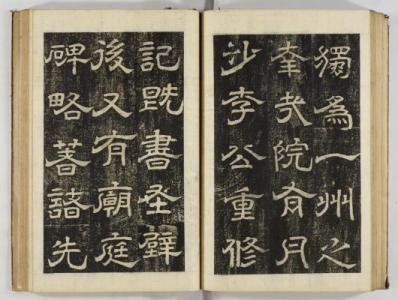 獨為一州之
幸哉院有月
沙李公重修
記既書在壁
後又有廟庭
碑略著諸先